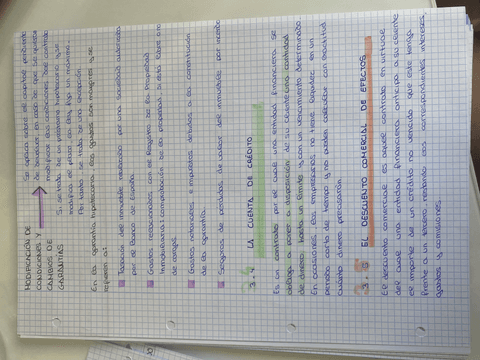 MODIFICACIÓN DE
CONDICIONES Y
CAMBIOS DE
GARANTÍAS
Se aplica sobre el capital pendiente
de devolver en caso de que se quieran
modificar las condiciones del contrato.
Si se trata de un préstamo hipotecario y se
modifica el plazo, hay fijo un máximo.
Por tanto, se trata de una excepción.
En la garantía hipotecaria los gastos son mayores y se
refieren a:
Tasación del inmueble realizada por una sociedad autorizada
por el Banco de España.
Gastos relacionados con el Registro de la Propiedad
Inmobiliaria (comprobación de la propiedad, si está libre o no
de cargas).
Gastos notariales e impuestos debidos a la constitución
de la garantía.
Seguros de pérdidas de valor del inmueble por
3.4. LA CUENTA DE CRÉDITO
Es un contrato por el cual una entidad financiera se
obliga a poner a disposición de su cliente una cantidad
de dinero hasta un límite y con un vencimiento determinado
En ocasiones los empresarios no tiene liquidez en un
periodo corto de tiempo y no pueden calcular con exactitud
cuánto dinero precisarán.
3.5 EL DESCUENTO COMERCIAL DE EFECTOS
El descuento comercial es aquel contrato en virtud
del cual una entidad financiera anticipa a su cliente
el importe de un crédito no vencido que este tenga
frente a un tercero restando los correspondientes intereses,
gastos y comisiones.